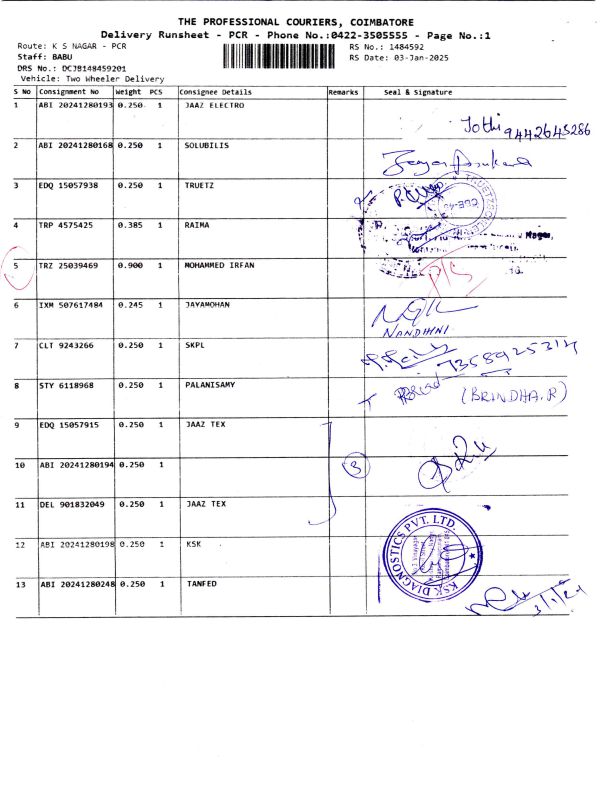 THE PROFESSIONAL COURIERS, COIMBATORE
Delivery Runsheet - PCR - Phone No.:0422-3505555 - Page No.:1
Route: K S NAGAR - PCR RS No.: 1484592
Staff: BABU RS Date: 03-Jan-2025
DRS No.: DCJB148459201
Vehicle: Two Wheeler Delivery
S No Consignment No Weight PCS Consignee Details Remarks Seal & Signature
1 ABI 20241280193 0.250 1 JAAZ ELECTRO
Jothi 9442645286
2 ABI 20241280168 0.250 1 SOLUBILIS
3 EDQ 15057938 0.250 1 TRUETZ
4 TRP 4575425 0.385 1 RAIMA
5 TRZ 25039469 0.900 1 MOHAMMED IRFAN
6 IXM 507617484 0.245 1 JAYAMOHAN
NANDHINI
7 CLT 9243266 0.250 1 SKPL
7358925314
8 STY 6118968 0.250 1 PALANISAMY
(BRINDHA.R)
9 EDQ 15057915 0.250 1 JAAZ TEX
10 ABI 20241280194 0.250 1
3
11 DEL 901832049 0.250 1 JAAZ TEX
12 ABI 20241280198 0.250 1 KSK
KSK DIAGNOSTICS PVT. LTD.
13 ABI 20241280248 0.250 1 TANFED